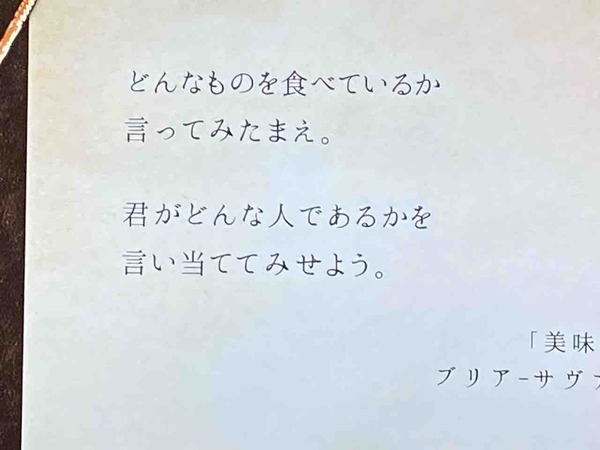 どんなものを食べているか
言ってみたまえ。
君がどんな人であるかを
言い当ててみせよう。
「美味
ブリアーサヴァ